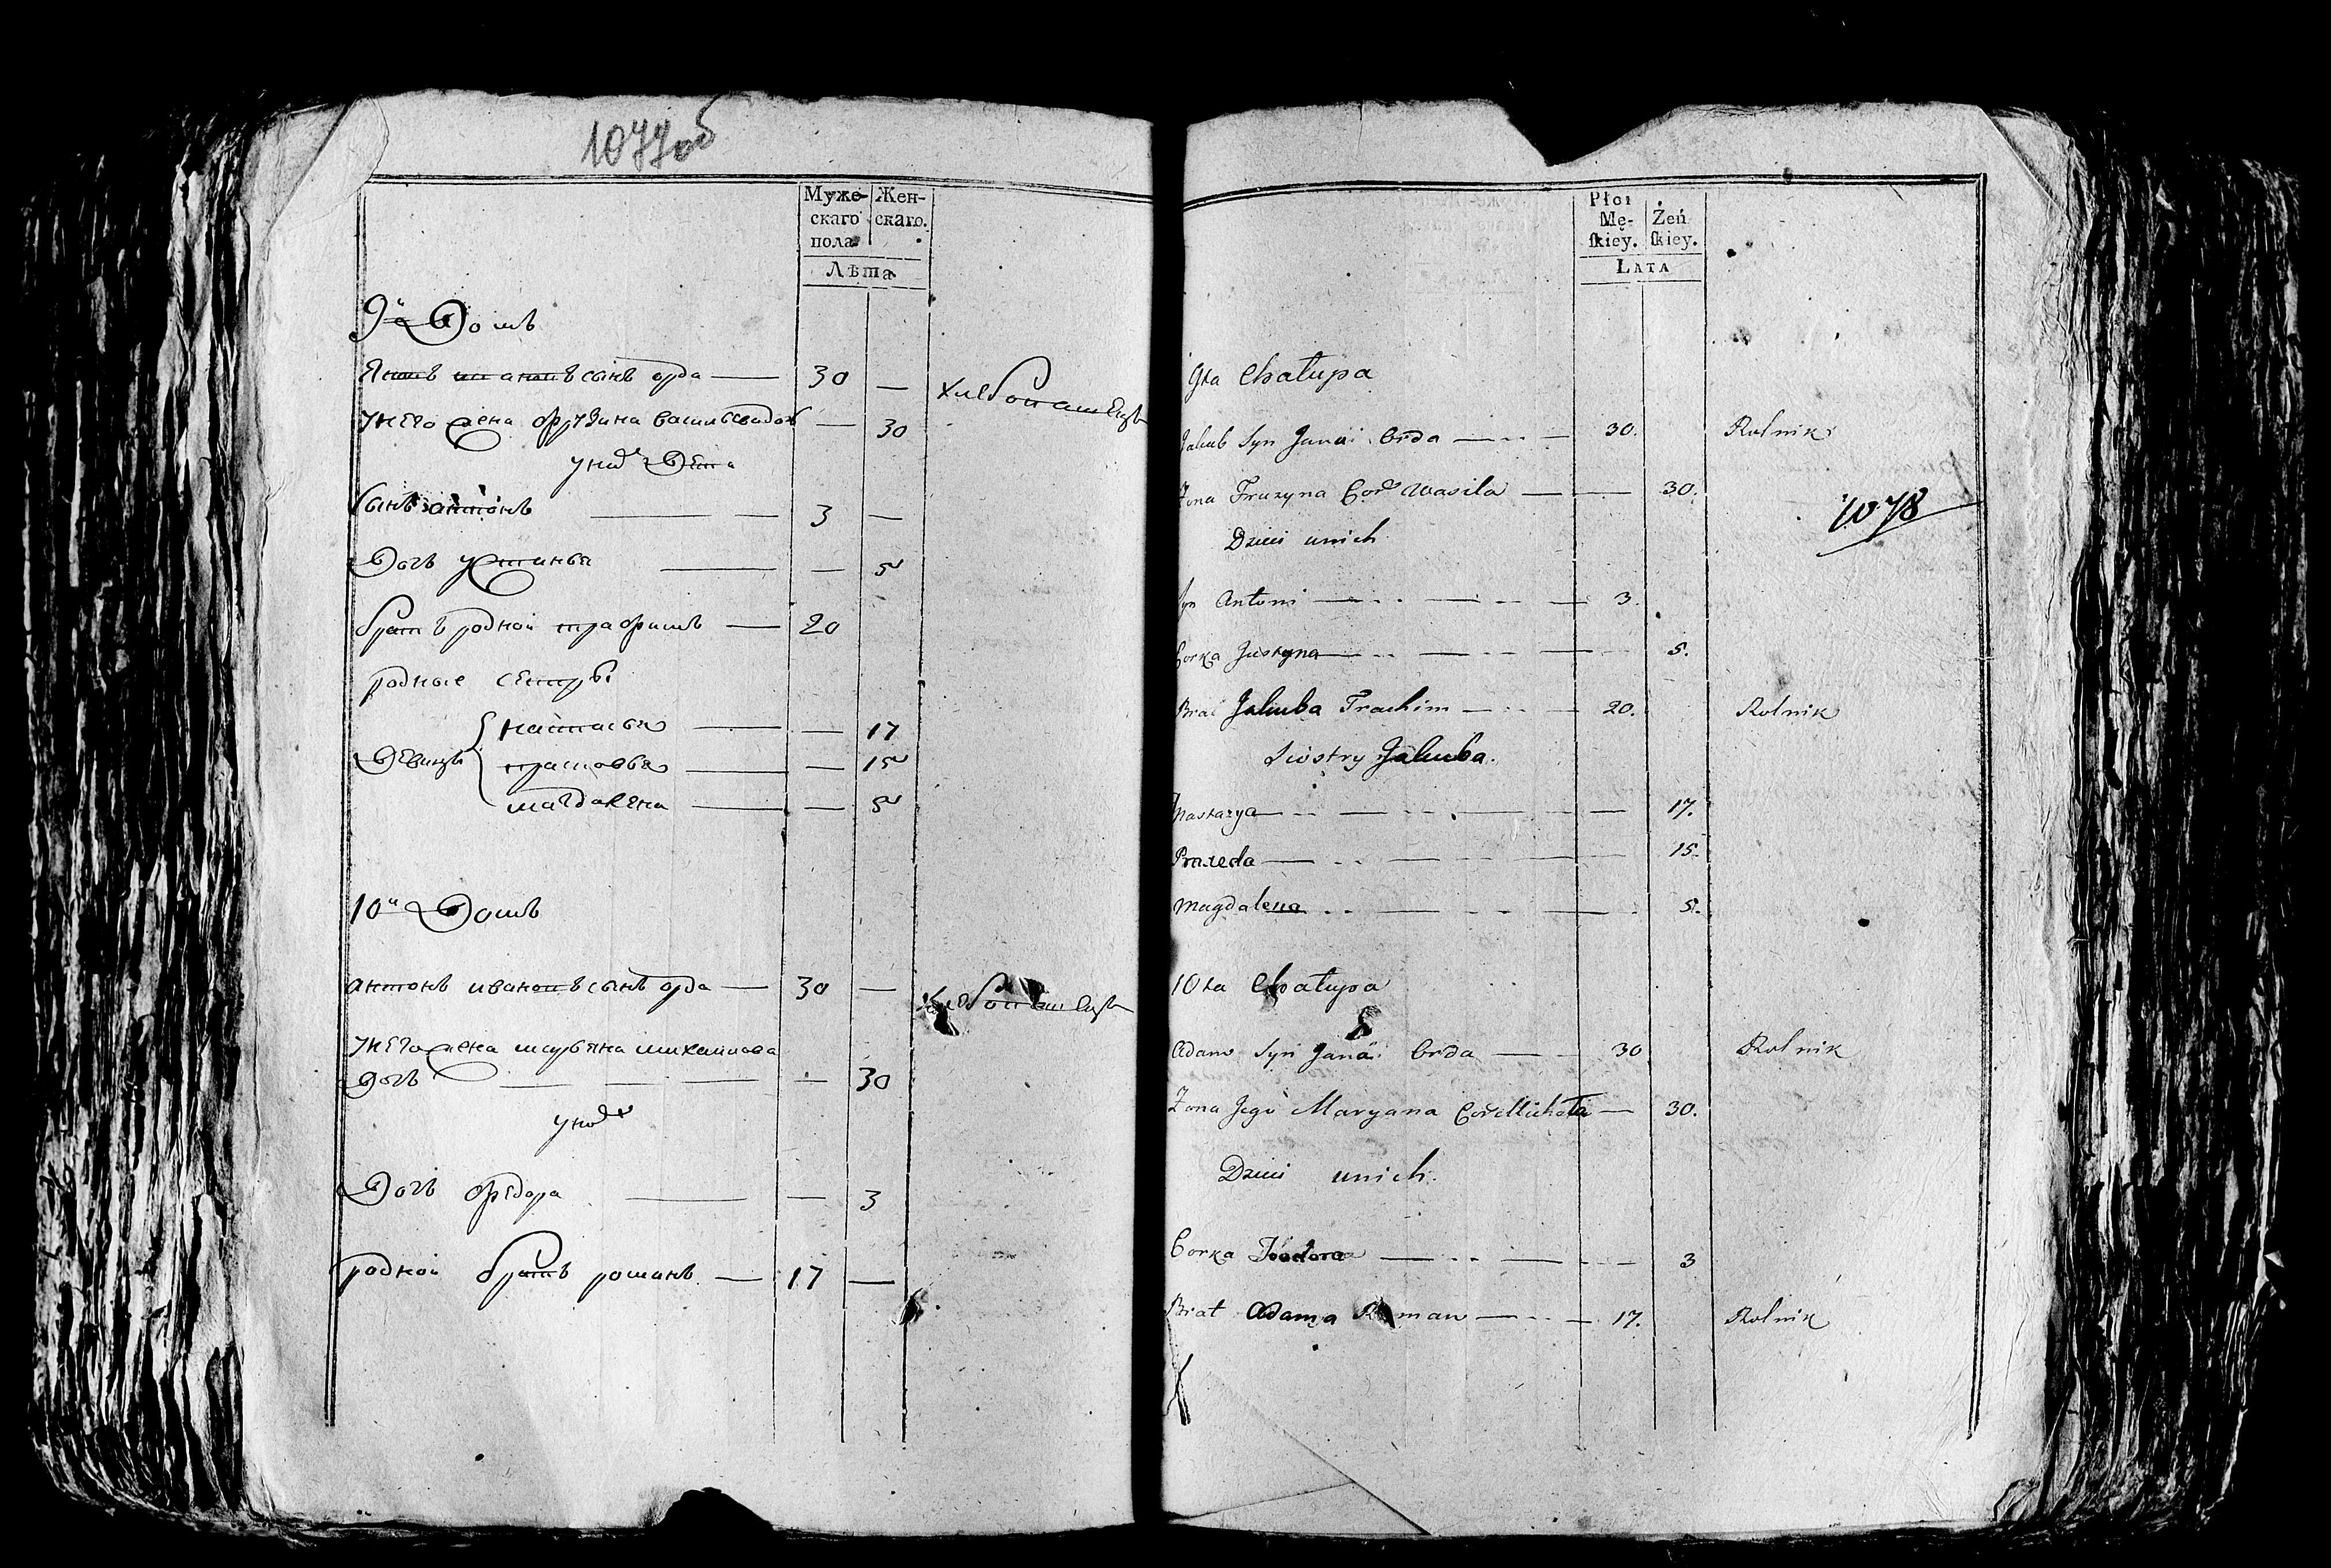 1077об
Муже-
скаго
пола
Жен-
скаго.
Лѣта
9й Домъ
сынъ орда — 30 —
Хлебопашецъ
У него жена фрузина — 30
У них Дети
Сынъ антонъ — 3 —
Дочь устинья — — 5
братъ родной трафимъ — 20
родные сестры
Девицы
настасья — — 17
прасковья — — 15
магдалена — — 5
10й Домъ
антонъ ивановъ сынъ орда — 30 —
Хлебопашецъ
У него жена марьяна михайлова
Дочь — — — — 30
У них
Дочь федора — — 3
родной братъ романъ — 17 —
Płci
Mę-
skiey.
Żeń
skiey.
LATA
9ta Chałupa
Jakub Syn Jana Orda — 30. Rolnik
Żona Fruzyna Cor. Wasila — 30.
1078
Dzieci unich
Syn Antoni — 3.
Corka Justyna — 5.
Brat Jakuba Trachim — 20. Rolnik
Siostry Jakuba.
Nastazya — 17.
Praxeda — 15.
Magdalena — 5.
10ta Chałupa
Adam Syn Jana Orda — 30 Rolnik
Żona Jego Maryana Cor. Michała — 30.
Dzieci unich.
Corka Teodora — 3
Brat Adama Roman — 17. Rolnik